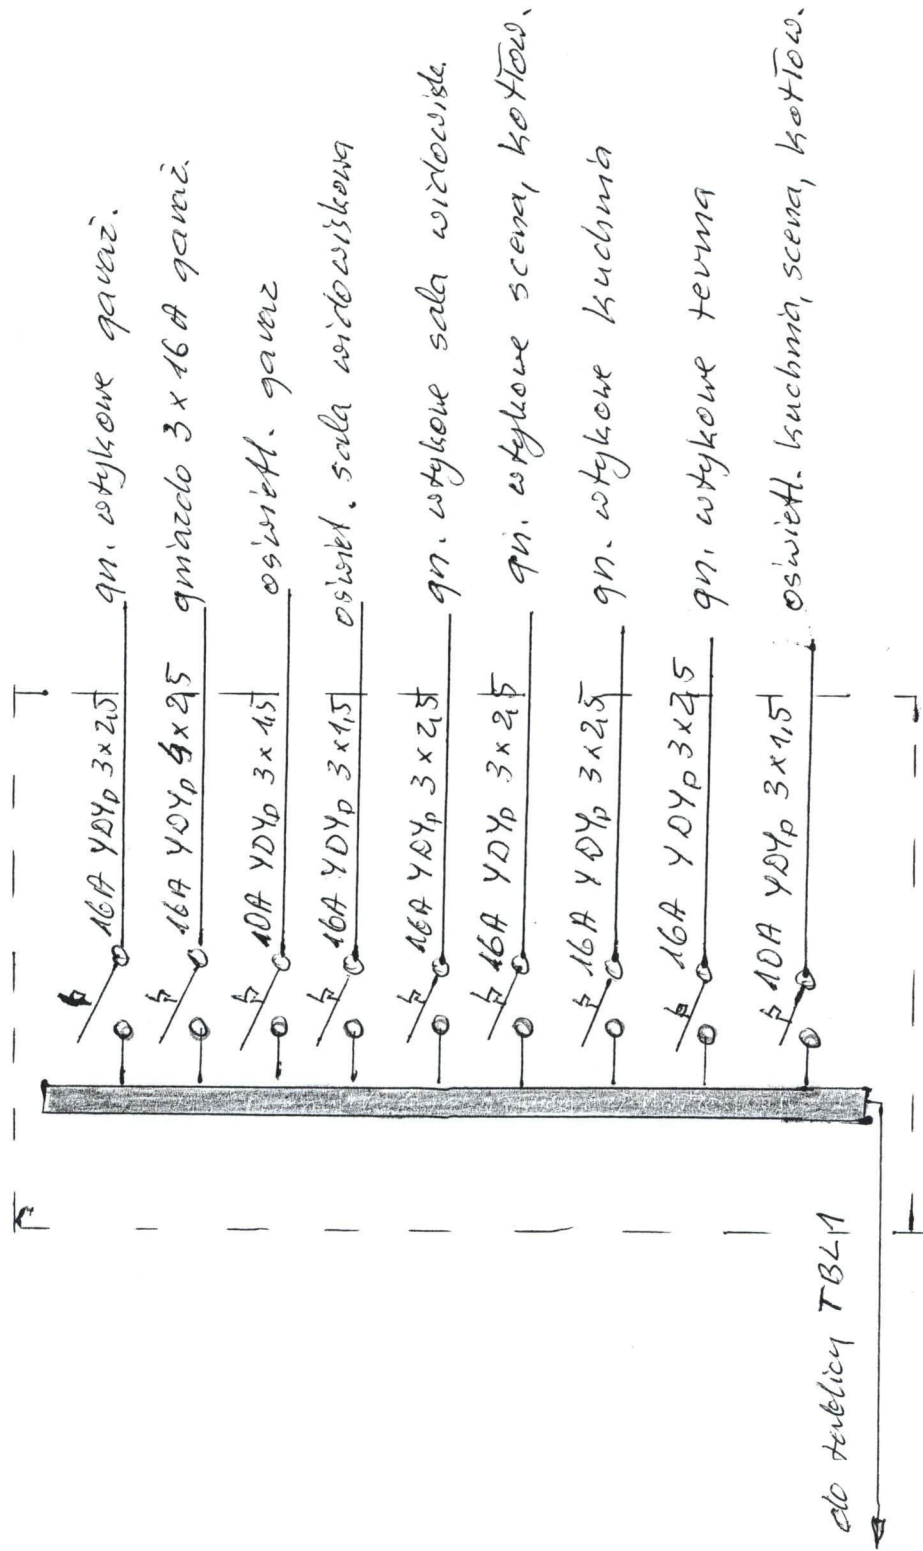 16A YDYp 3x2,5 gn. wtykowe garaż.
16A YDYp 4x2,5 gniazdo 3 x 16 A garaż.
10A YDYp 3x1,5 oświetl. garaż
16A YDYp 3x1,5 oświet. sala widowiskowa
16A YDYp 3x2,5 gn. wtykowe sala widowisk.
16A YDYp 3x2,5 gn. wtykowe scena, kotłow.
16A YDYp 3x2,5 gn. wtykowe kuchnia
16A YDYp 3x2,5 gn. wtykowe terma
10A YDYp 3x1,5 oświetl. kuchnia, scena, kotłow.
do tablicy TBL,1